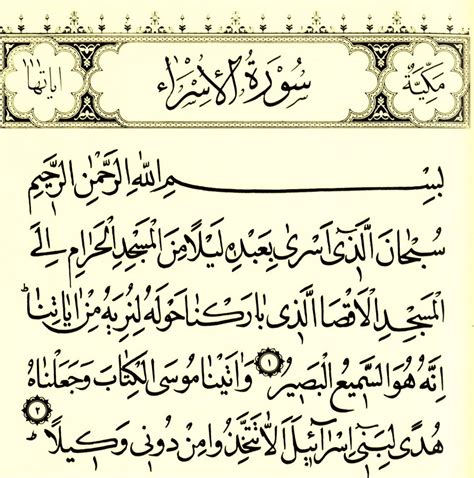 مَكِّيَّةٌ سُورَةُ الْاِسْرَاءِ اياتها
بِسْمِ اللّٰهِ الرَّحْمٰنِ الرَّحِيمِ
سُبْحَانَ الَّذِٓي اَسْرٰى بِعَبْدِهِ لَيْلًا مِنَ الْمَسْجِدِ الْحَرَامِ اِلَى
الْمَسْجِدِ الْاَقْصَا الَّذِي بَارَكْنَا حَوْلَهُ لِنُرِيَهُ مِنْ اٰيَاتِنَاۜ
اِنَّهُ هُوَ السَّمِيعُ الْبَصِيرُ ١ وَاٰتَيْنَا مُوسَى الْكِتَابَ وَجَعَلْنَاهُ
هُدًى لِبَنِٓي اِسْرَٓائِيلَ اَلَّا تَتَّخِذُوا مِنْ دُونِي وَكِيلًاۜ ٢